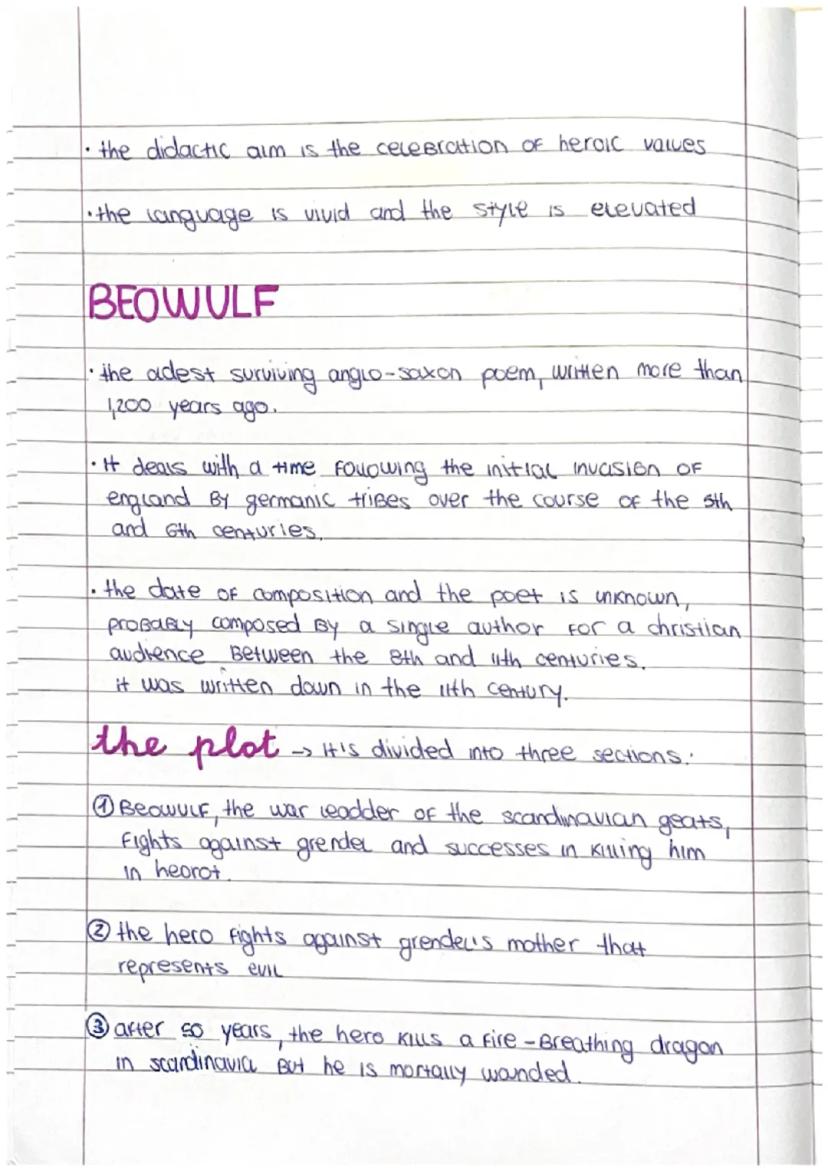 · the didactic aim is the celebration of heroic values
· the language is vivid and the style is elevated
BEOWULF
· the odest surviving anglo-saxon poem, written more than
1,200 years ago.
· It deals with a time following the initial invasion of
england By germanic tribes over the course of the 5th
and 6th centuries.
· the date of composition and the poet is unknown,
probably composed By a single author for a christian
audience Between the 8th and 11th centuries.
it was written down in the 11th century.
the plot → It's divided into three sections:
① Beowulf, the war leadder of the scandinavian geats,
fights against grendel and successes in killing him
in heorot.
② the hero fights against grendel's mother that
represents evil
③ after 50 years, the hero kills a fire-Breathing dragon
in scandinavia But he is mortally wanded.